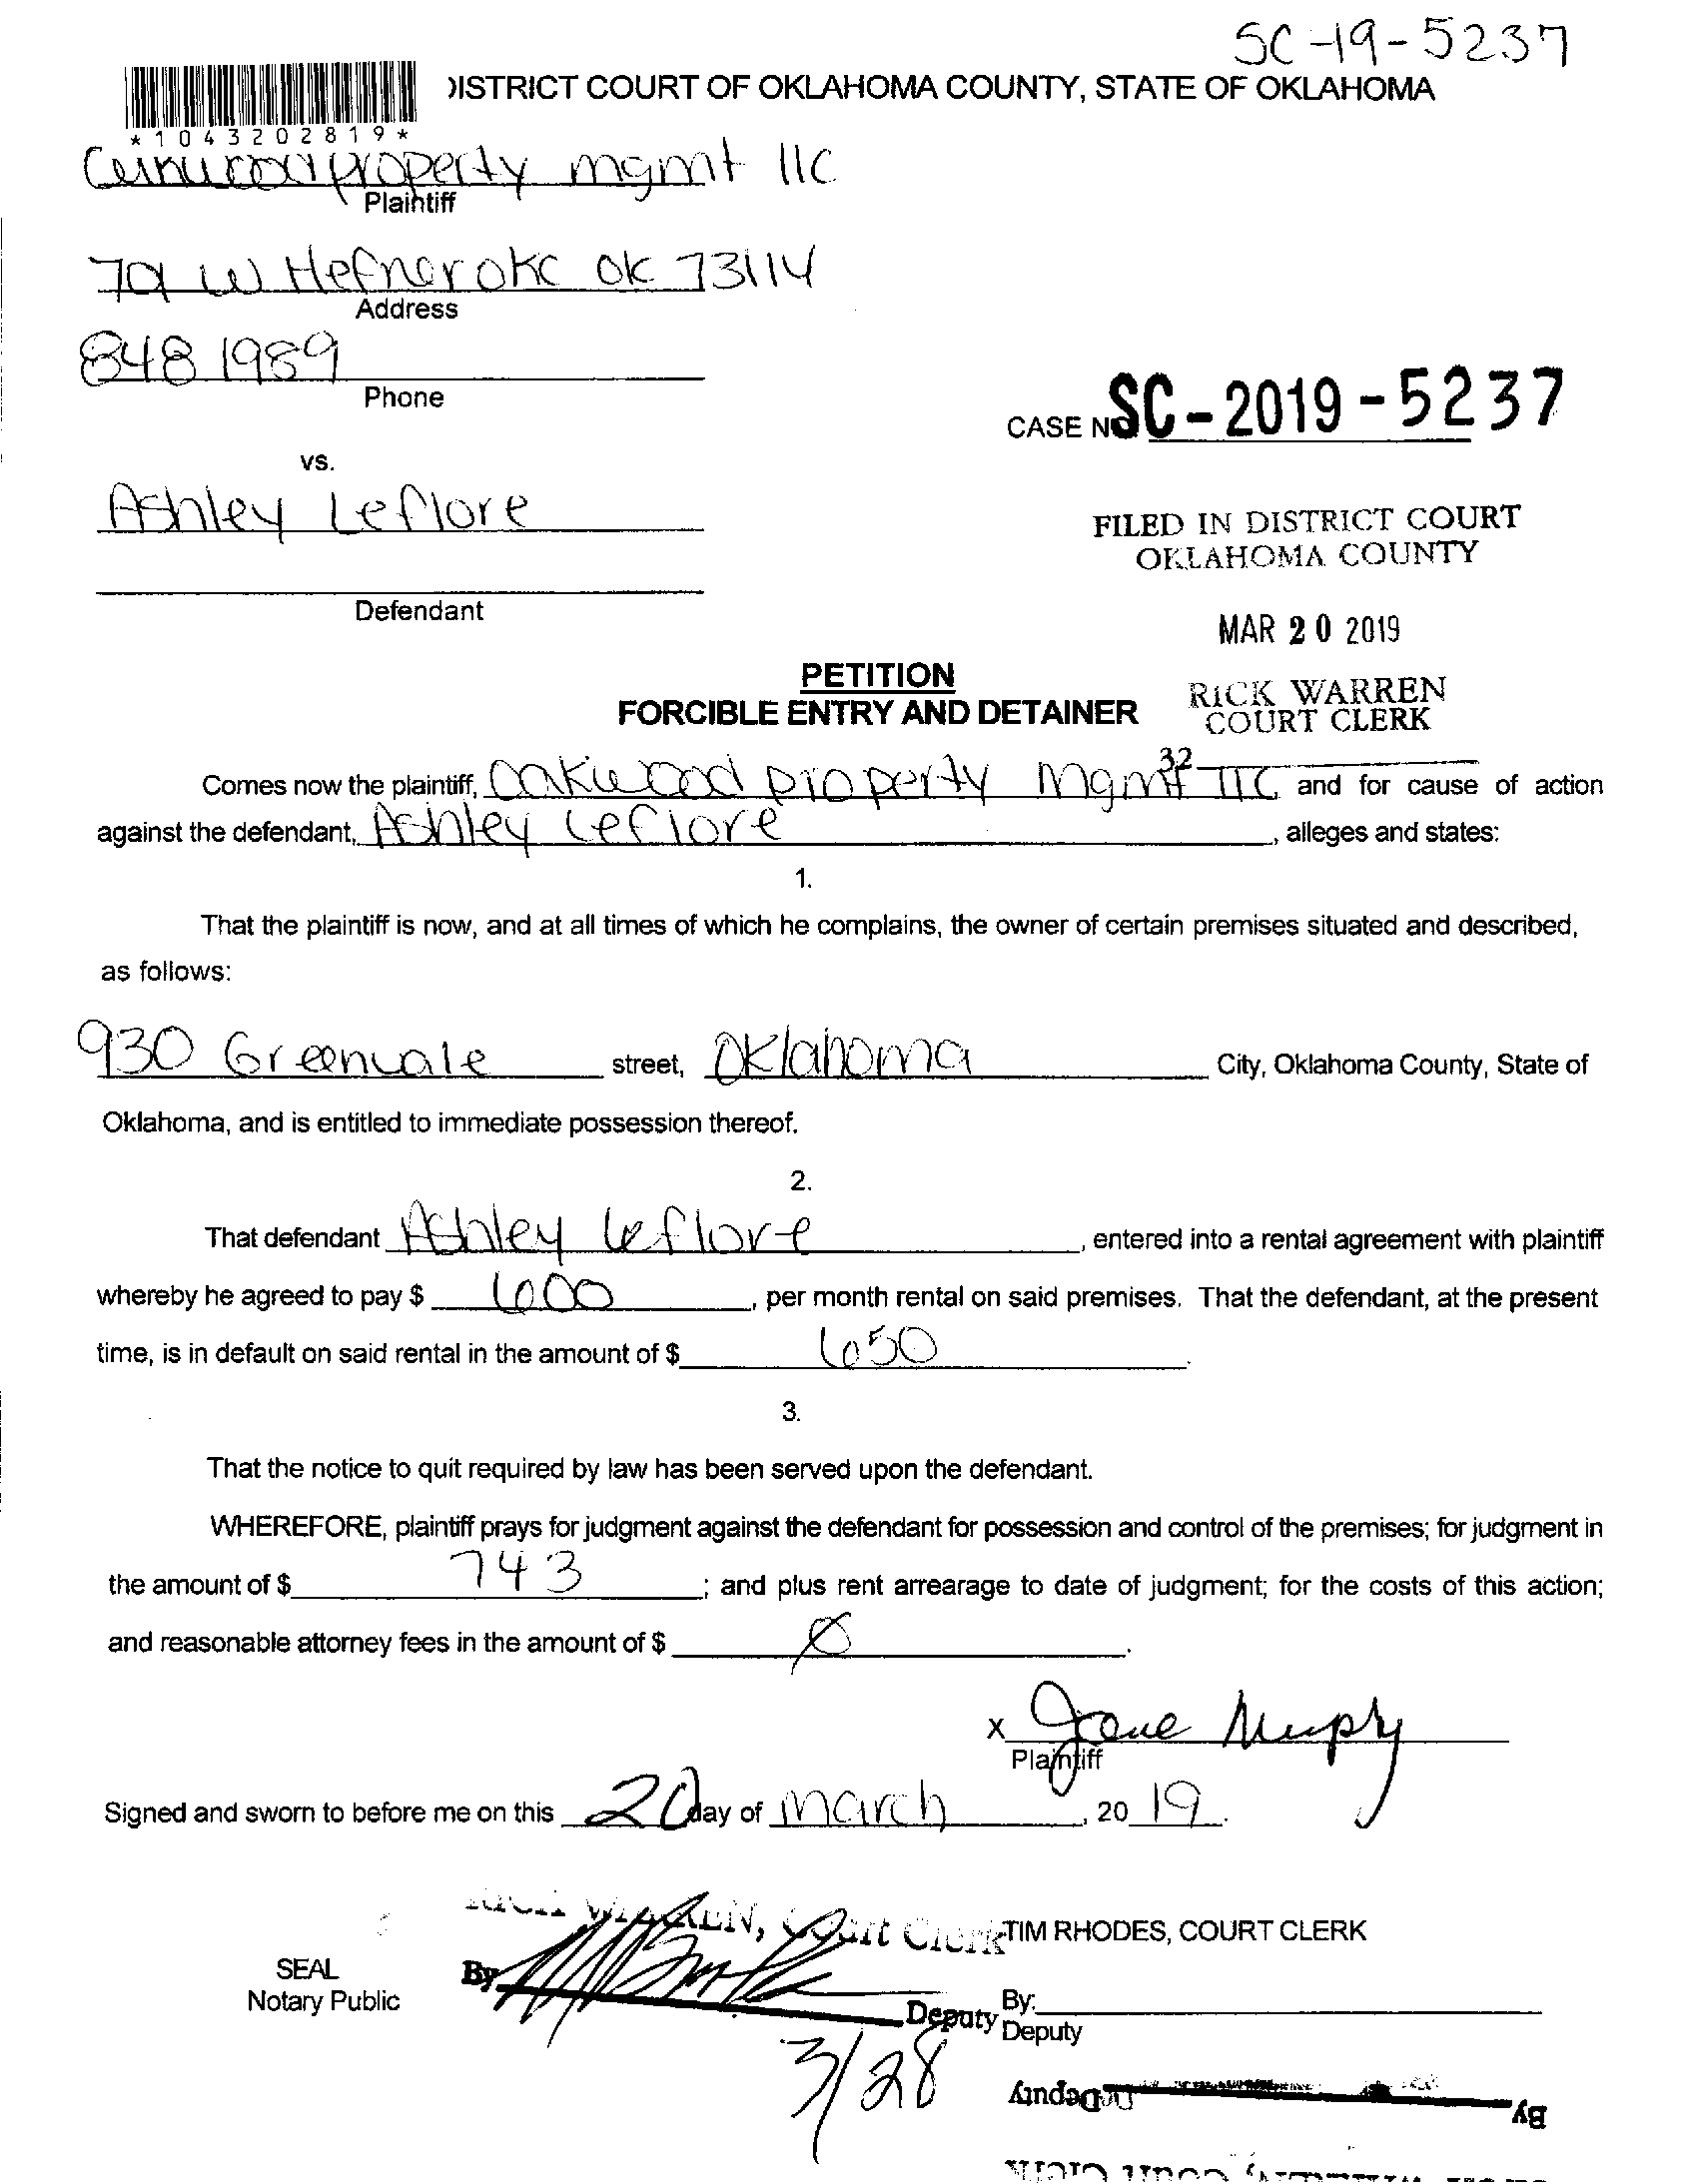 SC-19-5237
DISTRICT COURT OF OKLAHOMA COUNTY, STATE OF OKLAHOMA
*1043202819*
property mgmt llc
Plaintiff
701 W Hefner okc ok 73114
Address
848 1989
Phone
CASE NO. SC-2019-5237
vs.
Ashley Leflore
FILED IN DISTRICT COURT
OKLAHOMA COUNTY
Defendant
MAR 20 2019
PETITION
FORCIBLE ENTRY AND DETAINER
RICK WARREN
COURT CLERK
32
Comes now the plaintiff, Oakwood property Mgmt LLC and for cause of action
against the defendant, Ashley Leflore, alleges and states:
1.
That the plaintiff is now, and at all times of which he complains, the owner of certain premises situated and described,
as follows:
930 Greenvale street, Oklahoma City, Oklahoma County, State of
Oklahoma, and is entitled to immediate possession thereof.
2.
That defendant Ashley Leflore, entered into a rental agreement with plaintiff
whereby he agreed to pay $ 600, per month rental on said premises. That the defendant, at the present
time, is in default on said rental in the amount of $ 650.
3.
That the notice to quit required by law has been served upon the defendant.
WHEREFORE, plaintiff prays for judgment against the defendant for possession and control of the premises; for judgment in
the amount of $ 743; and plus rent arrearage to date of judgment; for the costs of this action;
and reasonable attorney fees in the amount of $ Ø.
X Murphy
Plaintiff
Signed and sworn to before me on this 20 day of March, 2019.
RICK WARREN, Court Clerk
TIM RHODES, COURT CLERK
SEAL
Notary Public
By
Deputy
By:
Deputy
3/28
Deputy
By
Court Clerk